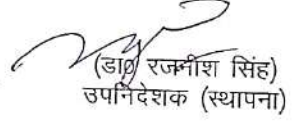 (डा0 रजनीश सिंह)
उपनिदेशक (स्थापना)